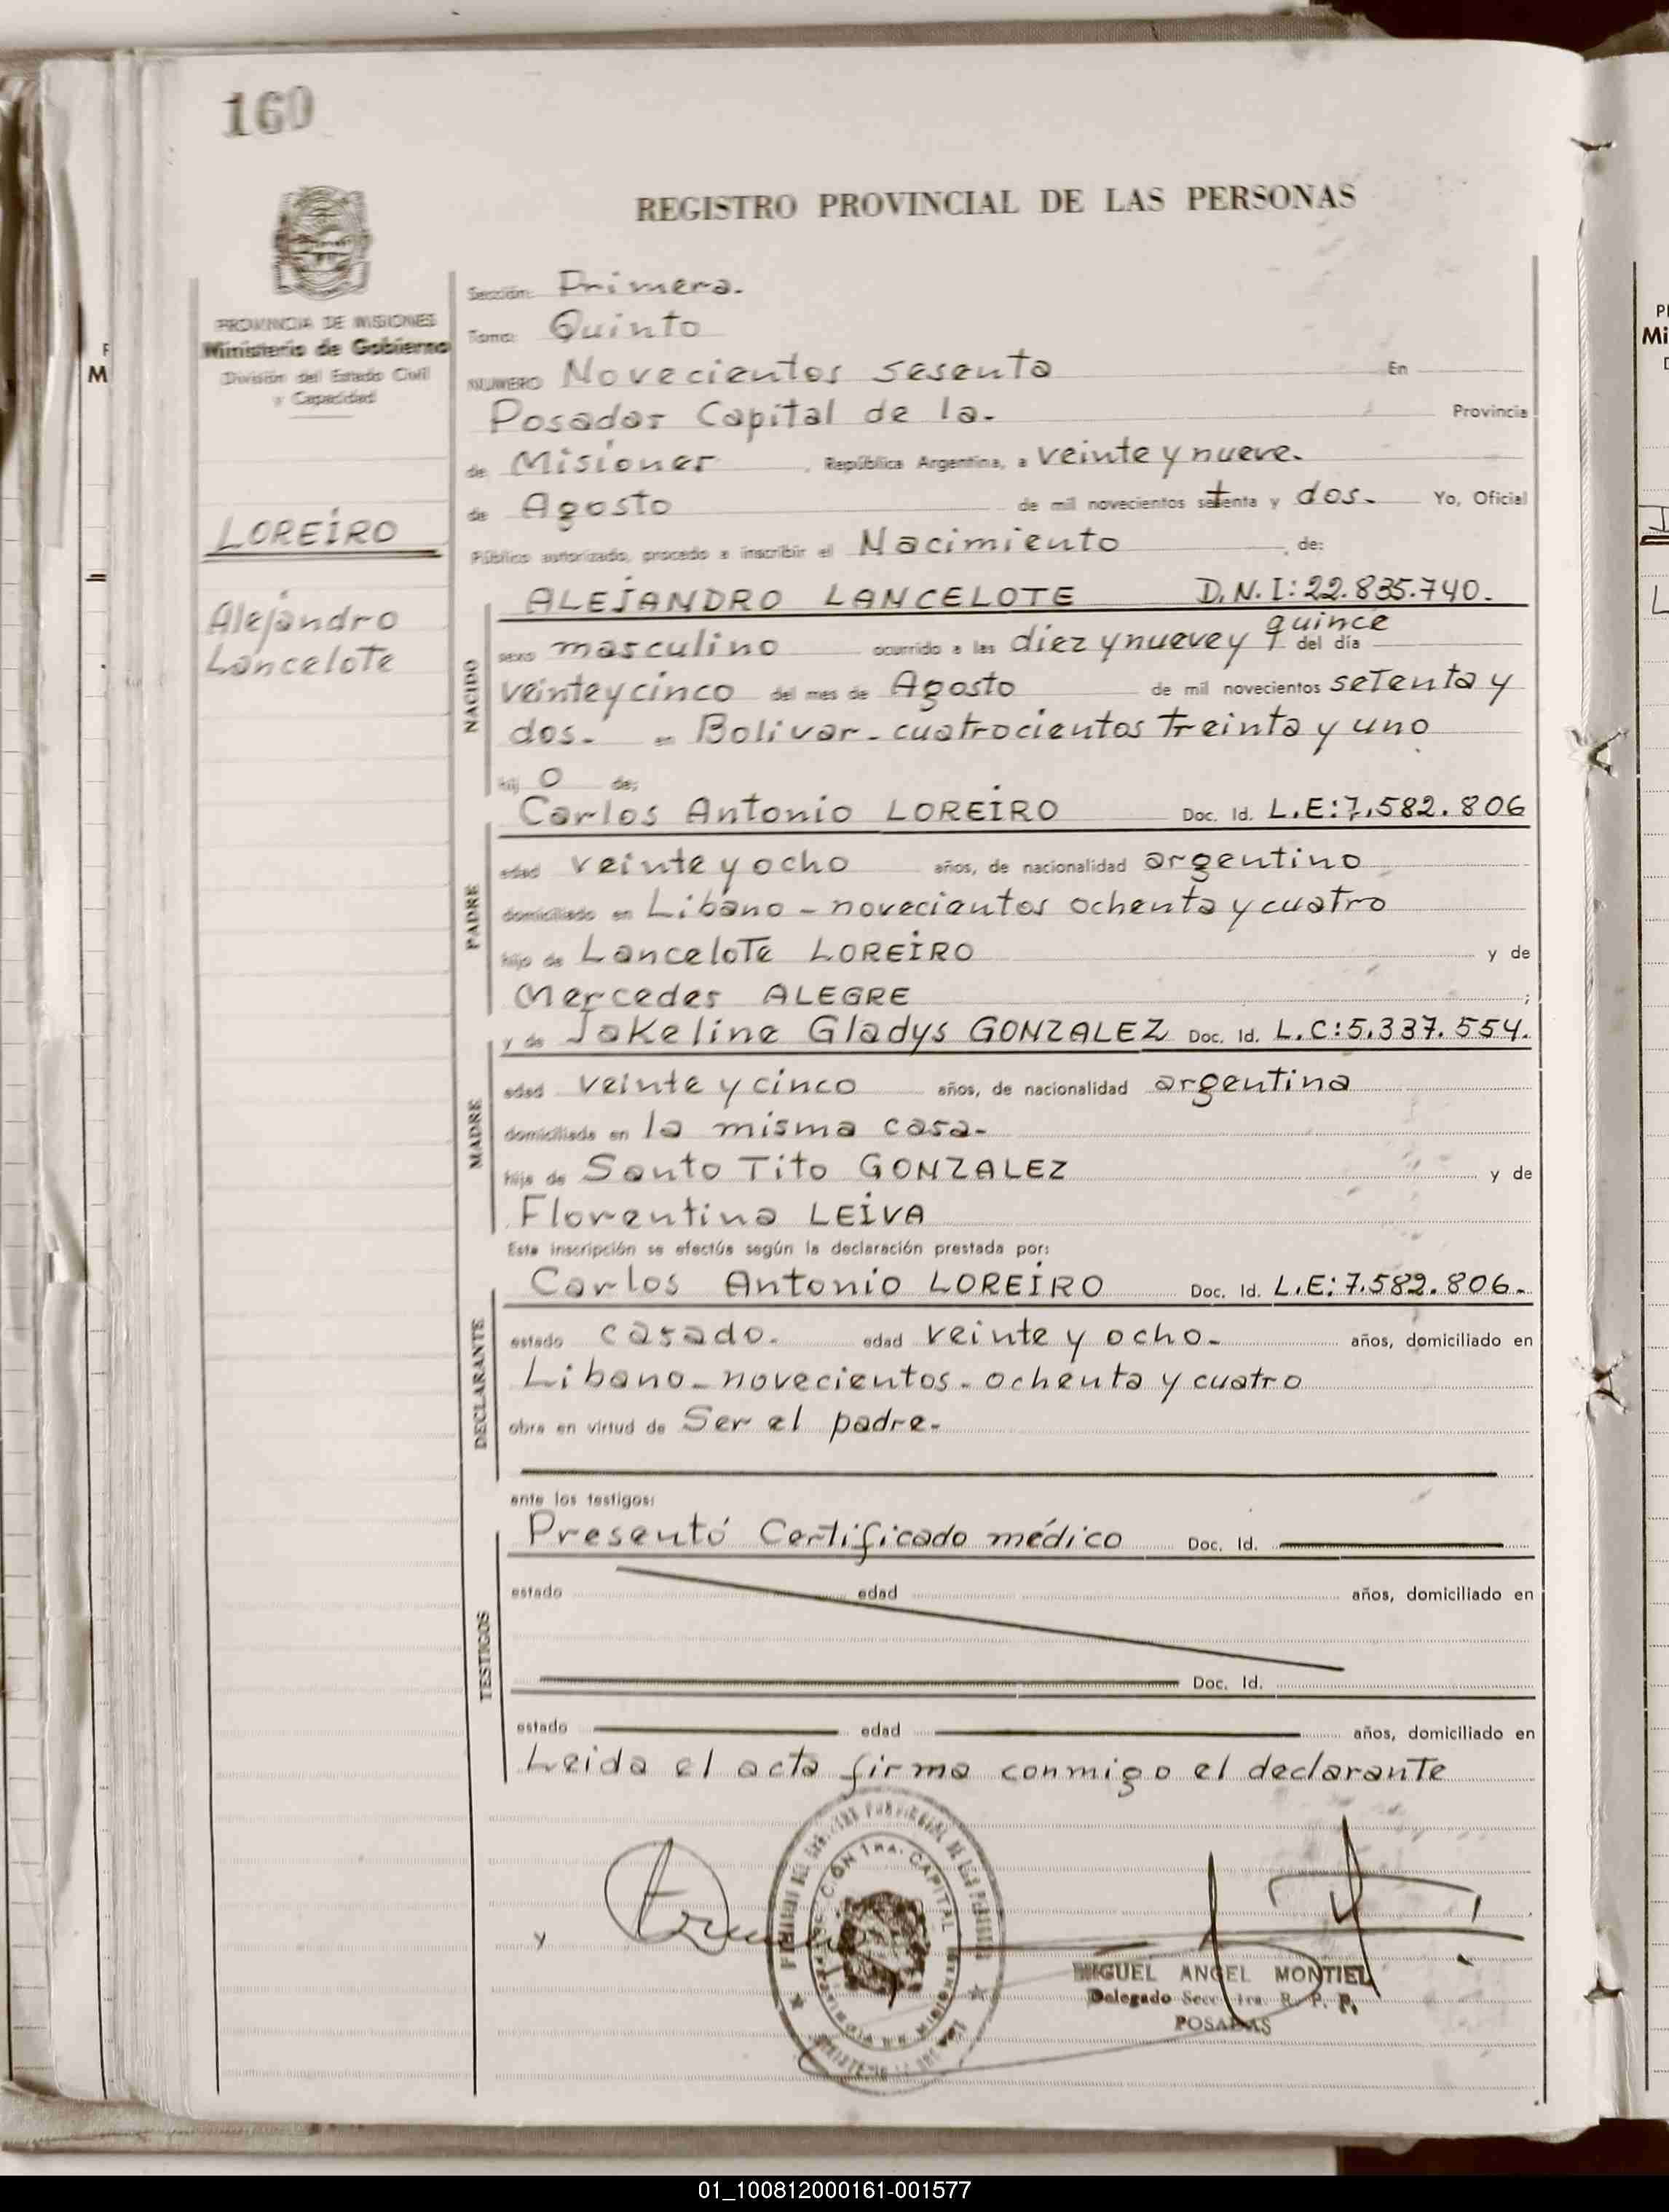 160
REGISTRO PROVINCIAL DE LAS PERSONAS
PROVINCIA DE MISIONES
Ministerio de Gobierno
División del Estado Civil
y Capacidad
LOREIRO
Alejandro
Lancelote
Sección: Primera.
Tomo: Quinto
NUMERO Novecientos sesenta En
Posadas Capital de la. Provincia
de Misiones , República Argentina, a veinte y nueve.
de Agosto de mil novecientos setenta y dos. Yo, Oficial
Público autorizado, procedo a inscribir el Nacimiento , de:
NACIDO
ALEJANDRO LANCELOTE D.N.I: 22.835.740.
sexo masculino ocurrido a las diez y nueve y quince del día
veinte y cinco del mes de Agosto de mil novecientos setenta y
dos. en Bolivar - cuatrocientos treinta y uno
hij o de;
PADRE
Carlos Antonio LOREIRO Doc. Id. L.E: 7.582.806
edad veinte y ocho años, de nacionalidad argentino
domiciliado en Libano - novecientos ochenta y cuatro
hijo de Lancelote LOREIRO y de
Mercedes ALEGRE ;
MADRE
y de Jakeline Gladys GONZALEZ Doc. Id. L.C: 5.337.554.
edad veinte y cinco años, de nacionalidad argentina
domiciliada en la misma casa-
hija de Santo Tito GONZALEZ y de
Florentina LEIVA
Esta inscripción se efectúa según la declaración prestada por:
DECLARANTE
Carlos Antonio LOREIRO Doc. Id. L.E: 7.582.806.
estado casado. edad veinte y ocho- años, domiciliado en
Libano - novecientos - ochenta y cuatro
obra en virtud de Ser el padre-
ante los testigos:
TESTIGOS
Presentó Certificado médico Doc. Id.
estado edad años, domiciliado en
Doc. Id.
estado edad años, domiciliado en
Leida el acta firma conmigo el declarante
y
MIGUEL ANGEL MONTIEL
Delegado Secc. 1ra. R. P. P.
POSADAS
01_100812000161-001577